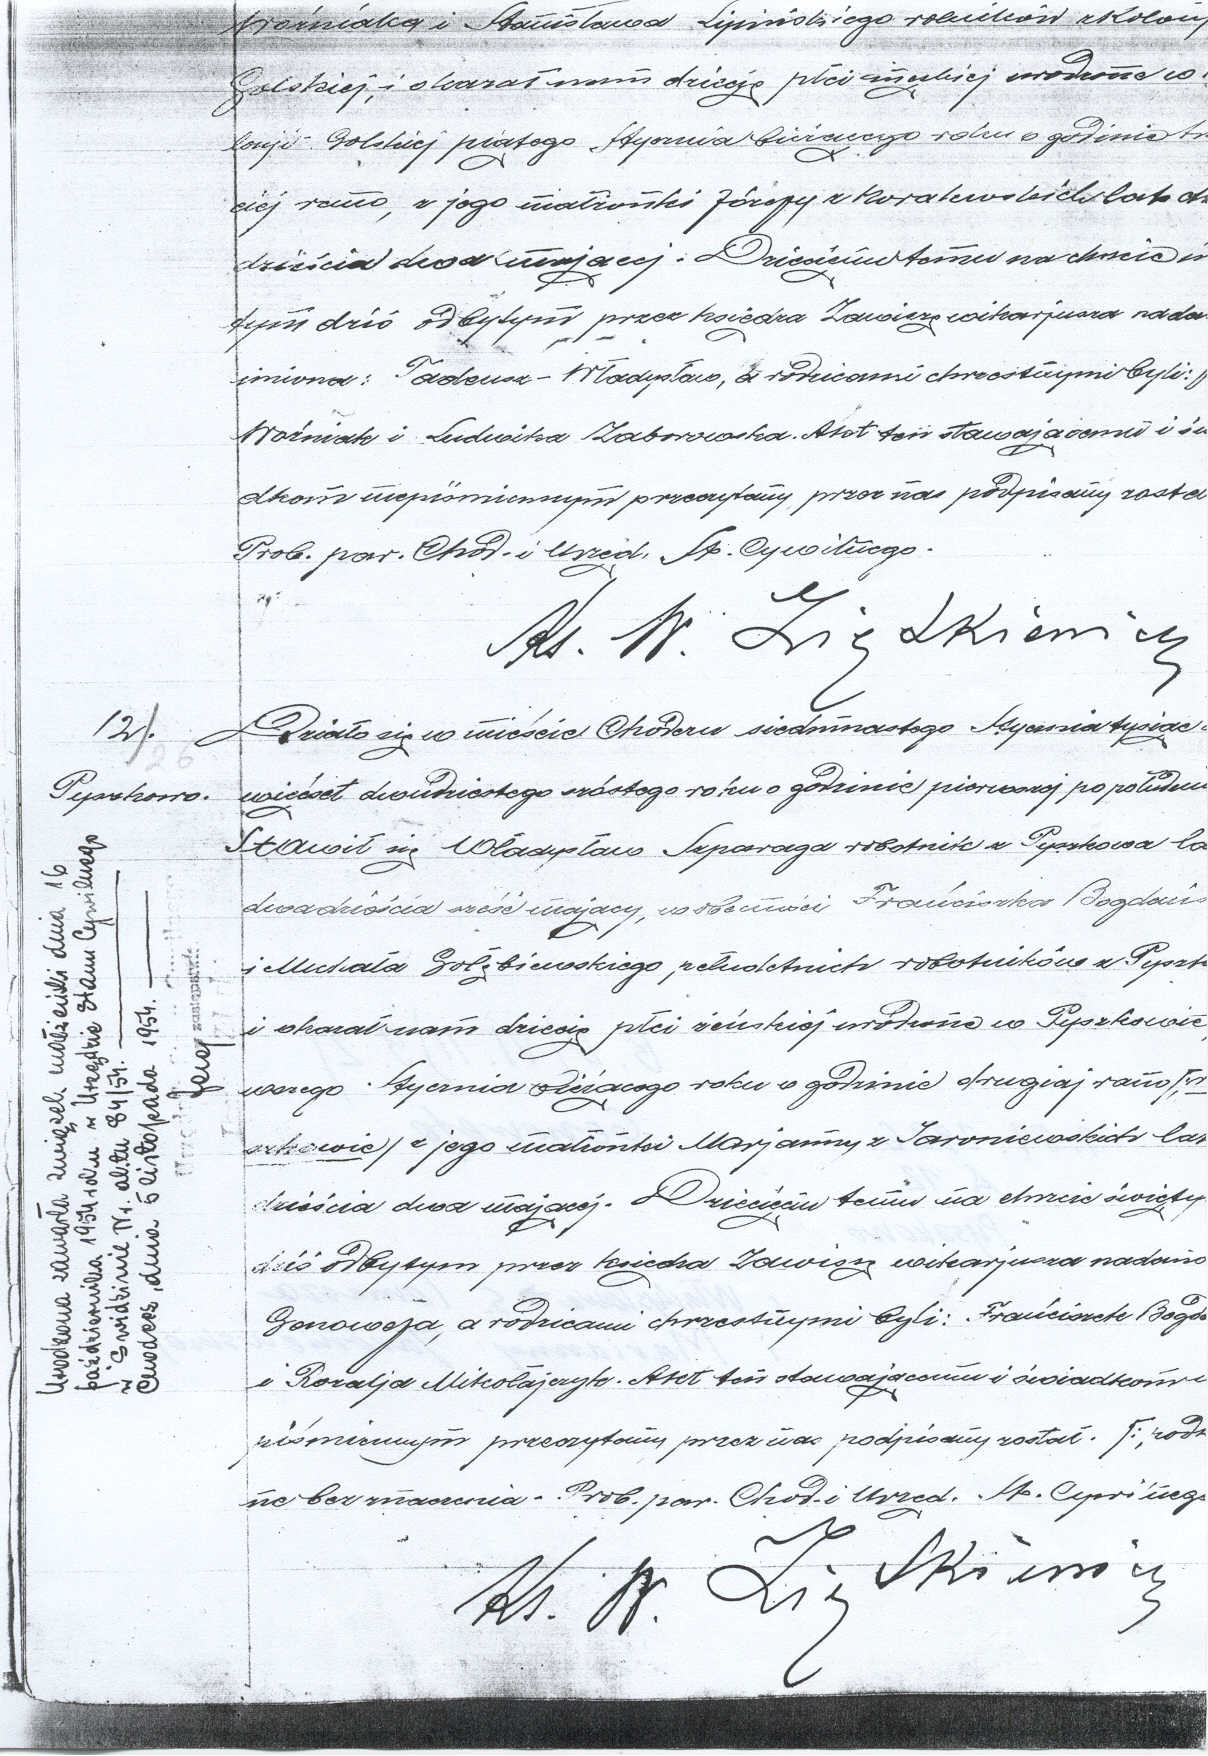 Woźniaka i Stanisława Lipińskiego rolników z Kolonji
Golskiej, i okazał nam dziecię płci męzkiej urodzone w
lonji Golskiej piątego Stycznia bieżącego roku o godzinie trze
ciej rano, z jego małżonki Józefy z Kowalewskich lat dw
dzieścia dwa mającej. Dziecięciu temu na chrzcie świę
tym dziś odbytym przez księdza Zawiszę wikarjusza nada
imiona: Tadeusz - Władysław, a rodzicami chrzestnymi byli:
Woźniak i Ludwika Zaborowska. Akt ten stawającemu i świa
dkom niepiśmiennym przeczytany przez nas podpisany zosta
Prob. par. Chod. i Urzęd. St. Cywilnego.
Ks. W.
12/.
26
Pyszkowo.
Działo się w mieście Chodczu siedmnastego Stycznia tysiąc
więćset dwudziestego szóstego roku o godzinie pierwszej po południu
Stawił się Władysław Szparaga robotnik z Pyszkowa la
dwadzieścia sześć mający, w obecności Franciszka Bogdańs
i Michała Gołębiewskiego, pełnoletnich robotników z Pyszk
i okazał nam dziecię płci żeńskiej urodzone w Pyszkowie,
wszego Stycznia bieżącego roku o godzinie drugiej rano
szkowie/ z jego małżonki Marjanny z Jaroniewskich lat
dzieścia dwa mającej. Dziecięciu temu na chrzcie święty
dziś odbytym przez księdza Zawiszę wikarjusza nadano
Genowefa, a rodzicami chrzestnymi byli: Franciszek Bogda
i Rozalja Mikołajczyk. Akt ten stawającemu i świadkom n
piśmiennym przeczytany przez nas podpisany został.
ne bez znaczenia. Prob. par. Chod. i Urzęd. St. Cywilnego
Ks. W.
Urodzona zawarła związek małżeński dnia 16
października 1954 roku w Urzędzie Stanu Cywilnego
w Świdzinie Nr. aktu 84/54.
Chodecz, dnia 5 listopada 1954.